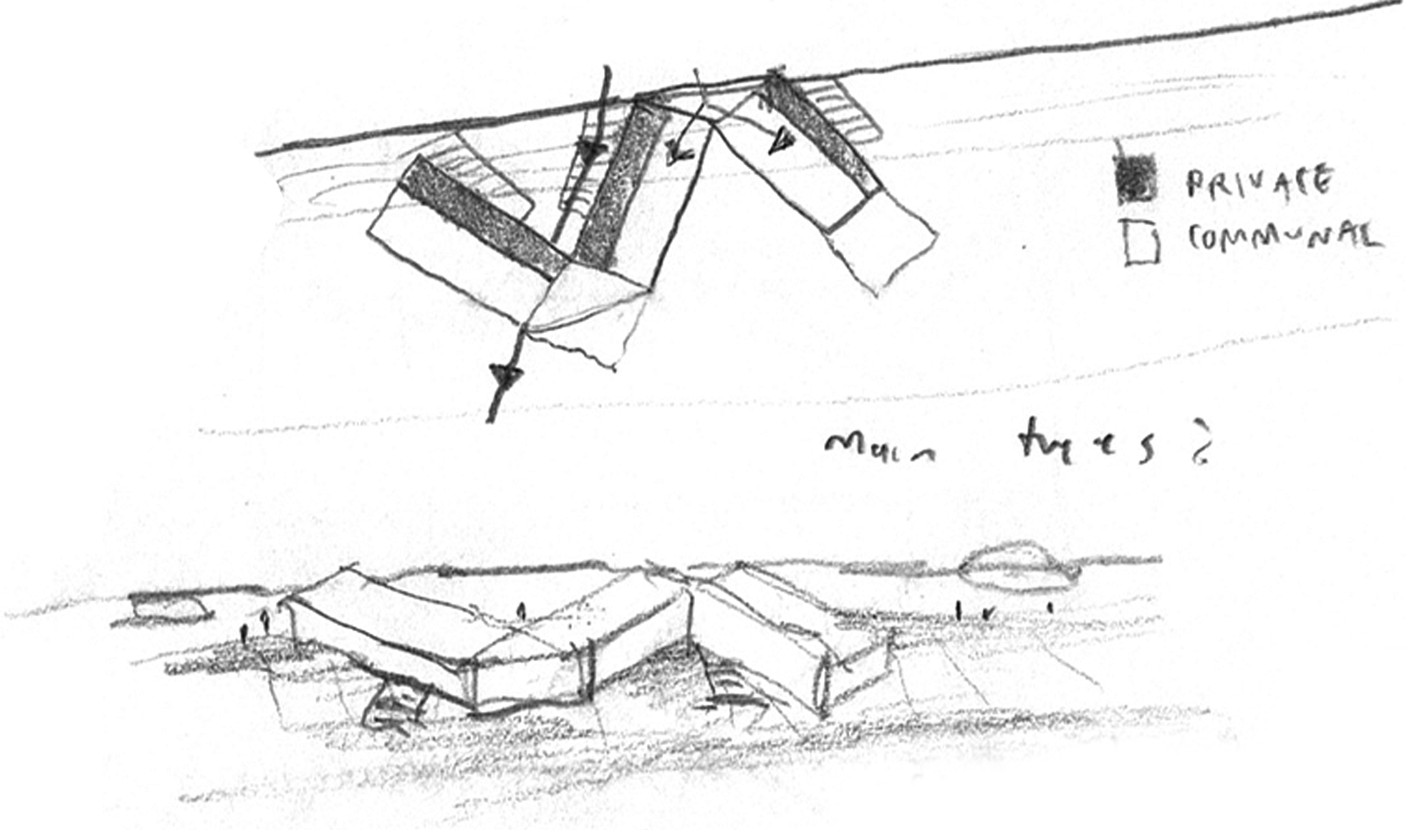 PRIVATE
COMMUNAL
Main types?